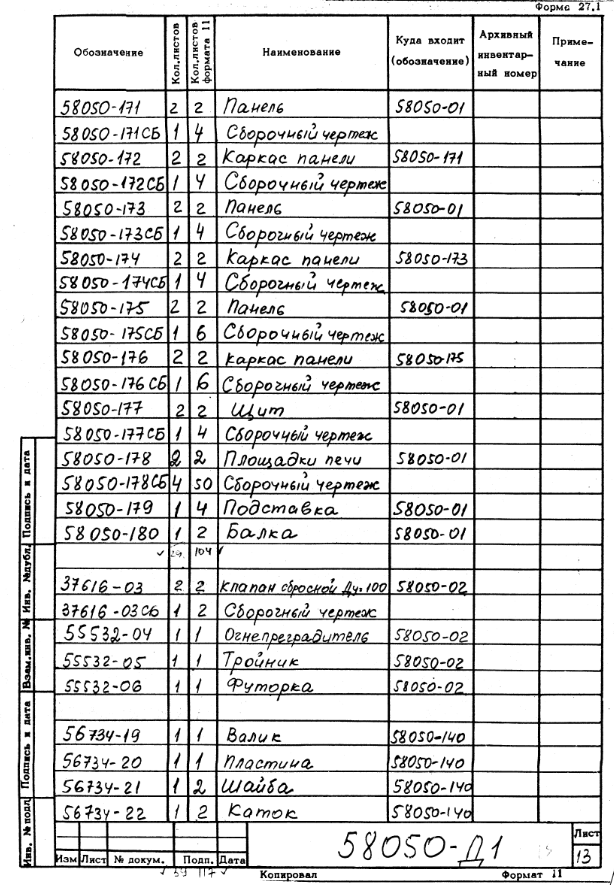 Форма 27.1
Обозначение Кол.листов Кол.листов формата 11 Наименование Куда входит (обозначение) Архивный инвентарный номер Примечание
58050-171 2 2 Панель 58050-01
58050-171СБ 1 4 Сборочный чертеж
58050-172 2 2 Каркас панели 58050-171
58050-172СБ 1 4 Сборочный чертеж
58050-173 2 2 Панель 58050-01
58050-173СБ 1 4 Сборочный чертеж
58050-174 2 2 Каркас панели 58050-173
58050-174СБ 1 4 Сборочный чертеж
58050-175 2 2 Панель 58050-01
58050-175СБ 1 6 Сборочный чертеж
58050-176 2 2 Каркас панели 58050-175
58050-176СБ 1 6 Сборочный чертеж
58050-177 2 2 Щит 58050-01
58050-177СБ 1 4 Сборочный чертеж
58050-178 2 2 Площадки печи 58050-01
58050-178СБ 4 50 Сборочный чертеж
58050-179 1 4 Подставка 58050-01
58050-180 1 2 Балка 58050-01
29 104
37616-03 2 2 Клапан сбросной Ду=100 58050-02
37616-03СБ 1 2 Сборочный чертеж
55532-04 1 1 Огнепреградитель 58050-02
55532-05 1 1 Тройник 58050-02
55532-06 1 1 Футорка 58050-02
56734-19 1 1 Валик 58050-140
56734-20 1 1 Пластина 58050-140
56734-21 1 2 Шайба 58050-140
56734-22 1 2 Каток 58050-140
Инв. № подл. Подпись и дата Взам.инв. № Инв. №дубл. Подпись и дата
58050-Д1
Лист
13
Изм Лист № докум. Подп. Дата
39 117
Копировал Формат 11